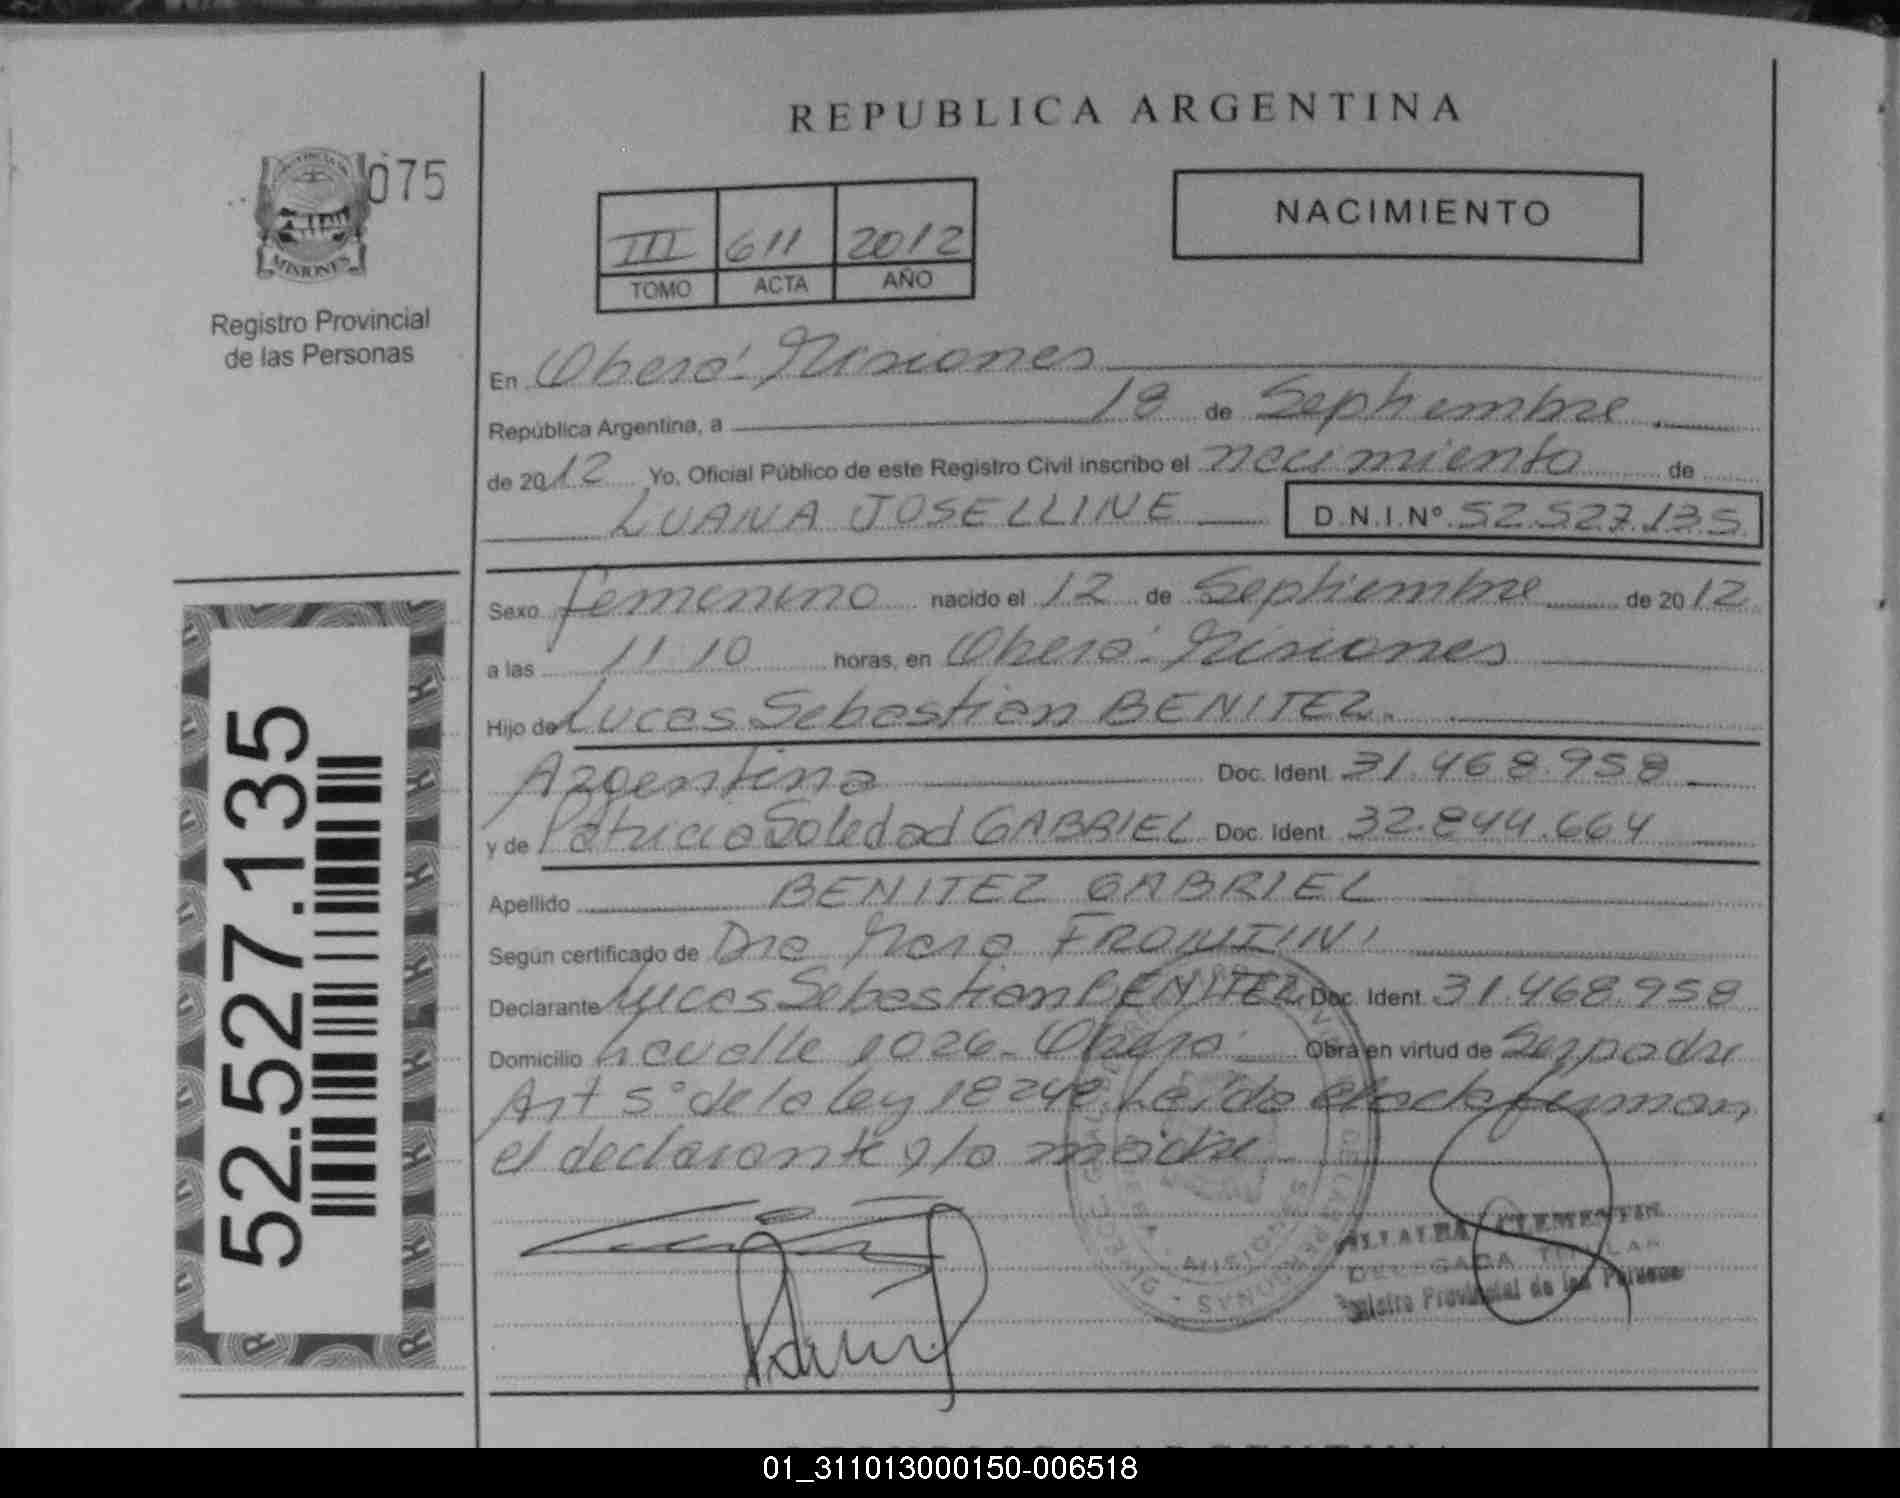 REPUBLICA ARGENTINA
075
MISIONES
Registro Provincial
de las Personas
NACIMIENTO
III 611 2012
TOMO ACTA AÑO
En Oberá. Misiones
República Argentina, a 18 de Septiembre
de 2012 Yo, Oficial Público de este Registro Civil inscribo el nacimiento de
LUANA JOSELLINE D.N.I.Nº 52.527.135
Sexo femenino nacido el 12 de Septiembre de 2012
a las 11 10 horas, en Oberá. Misiones
Hijo de Lucas Sebastian BENITEZ
Argentina Doc. Ident. 31.468.958
y de Patricia Soledad GABRIEL Doc. Ident. 32.844.664
Apellido BENITEZ GABRIEL
Según certificado de Dra FRONTINI
Declarante Lucas Sebastian BENITEZ Doc. Ident. 31.468.958
Domicilio Lavalle 1026 - Oberá Obra en virtud de Ser padre
Art 5° de la ley 18248. Leída el acta firman
el declarante y la madre
VILLALBA CLEMENTIN
DELEGADA TITULAR
Registro Provincial de las Personas
52.527.135
01_311013000150-006518